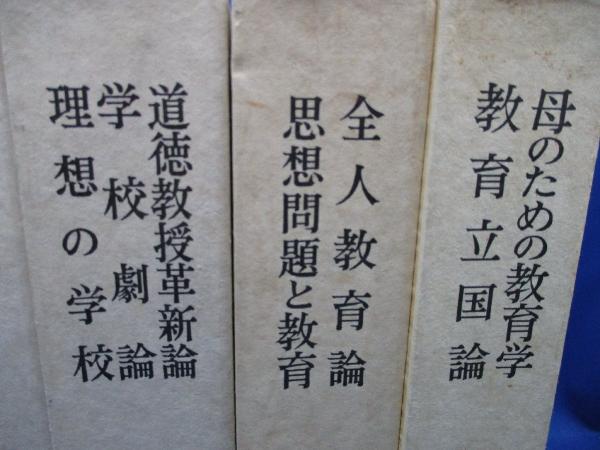 道徳教授革新論
学校劇論
理想の学校
全人教育論
思想問題と教育
母のための教育学
教育立国論